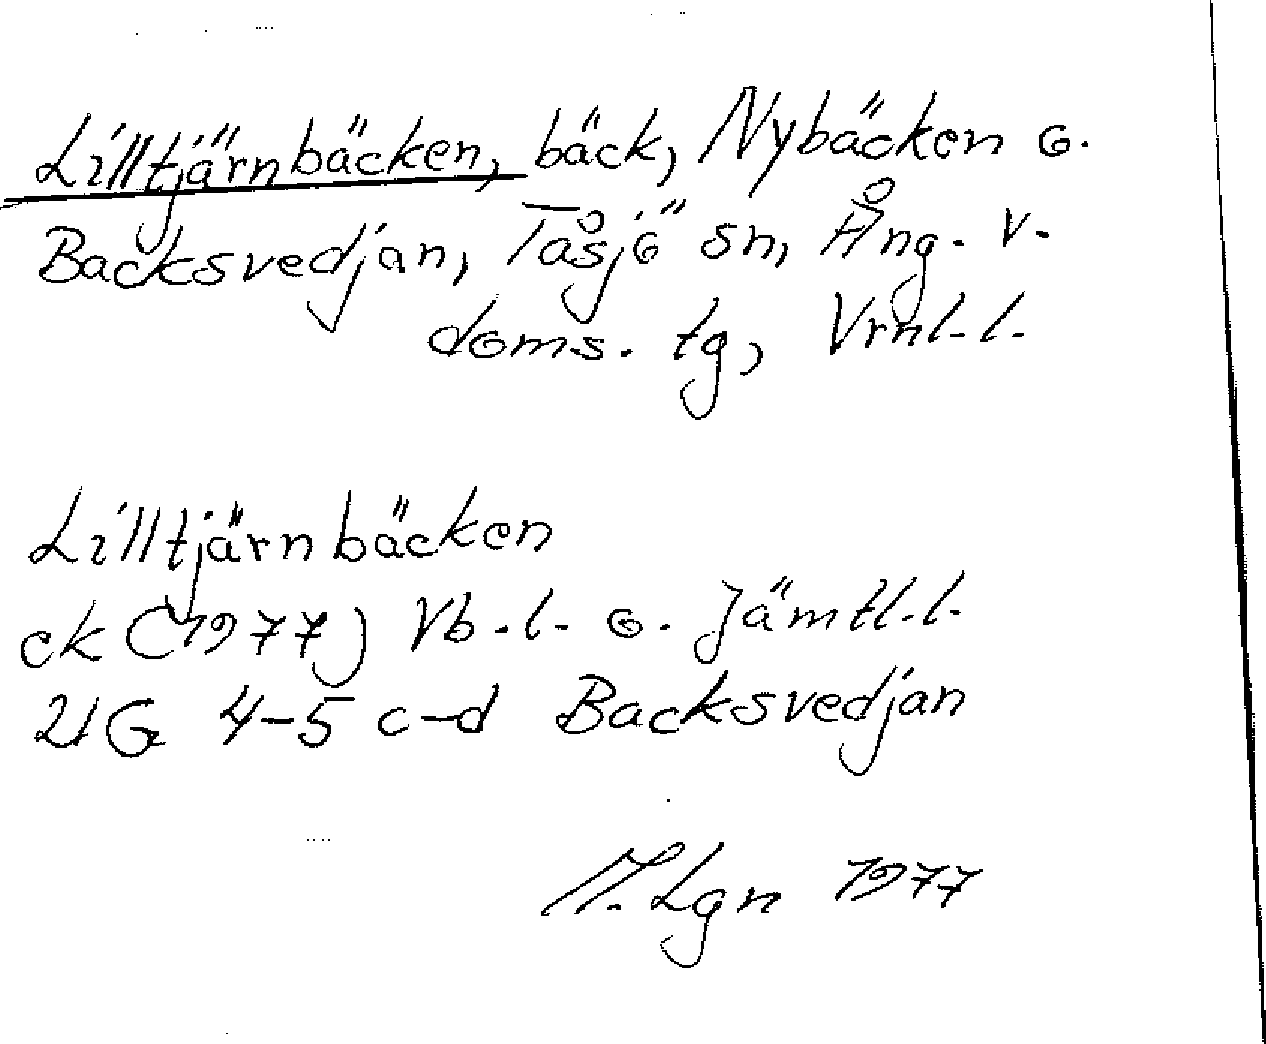 Lilltjärnbäcken, bäck, Nybäcken o.
Backsvedjan, Tåsjö sn, Ång. v.
doms. tg, Vrnl. l.
Lilltjärnbäcken
ek (1977) Vb. l. o. Jämtl. l.
21G 4-5 c-d Backsvedjan
Lgn 1977